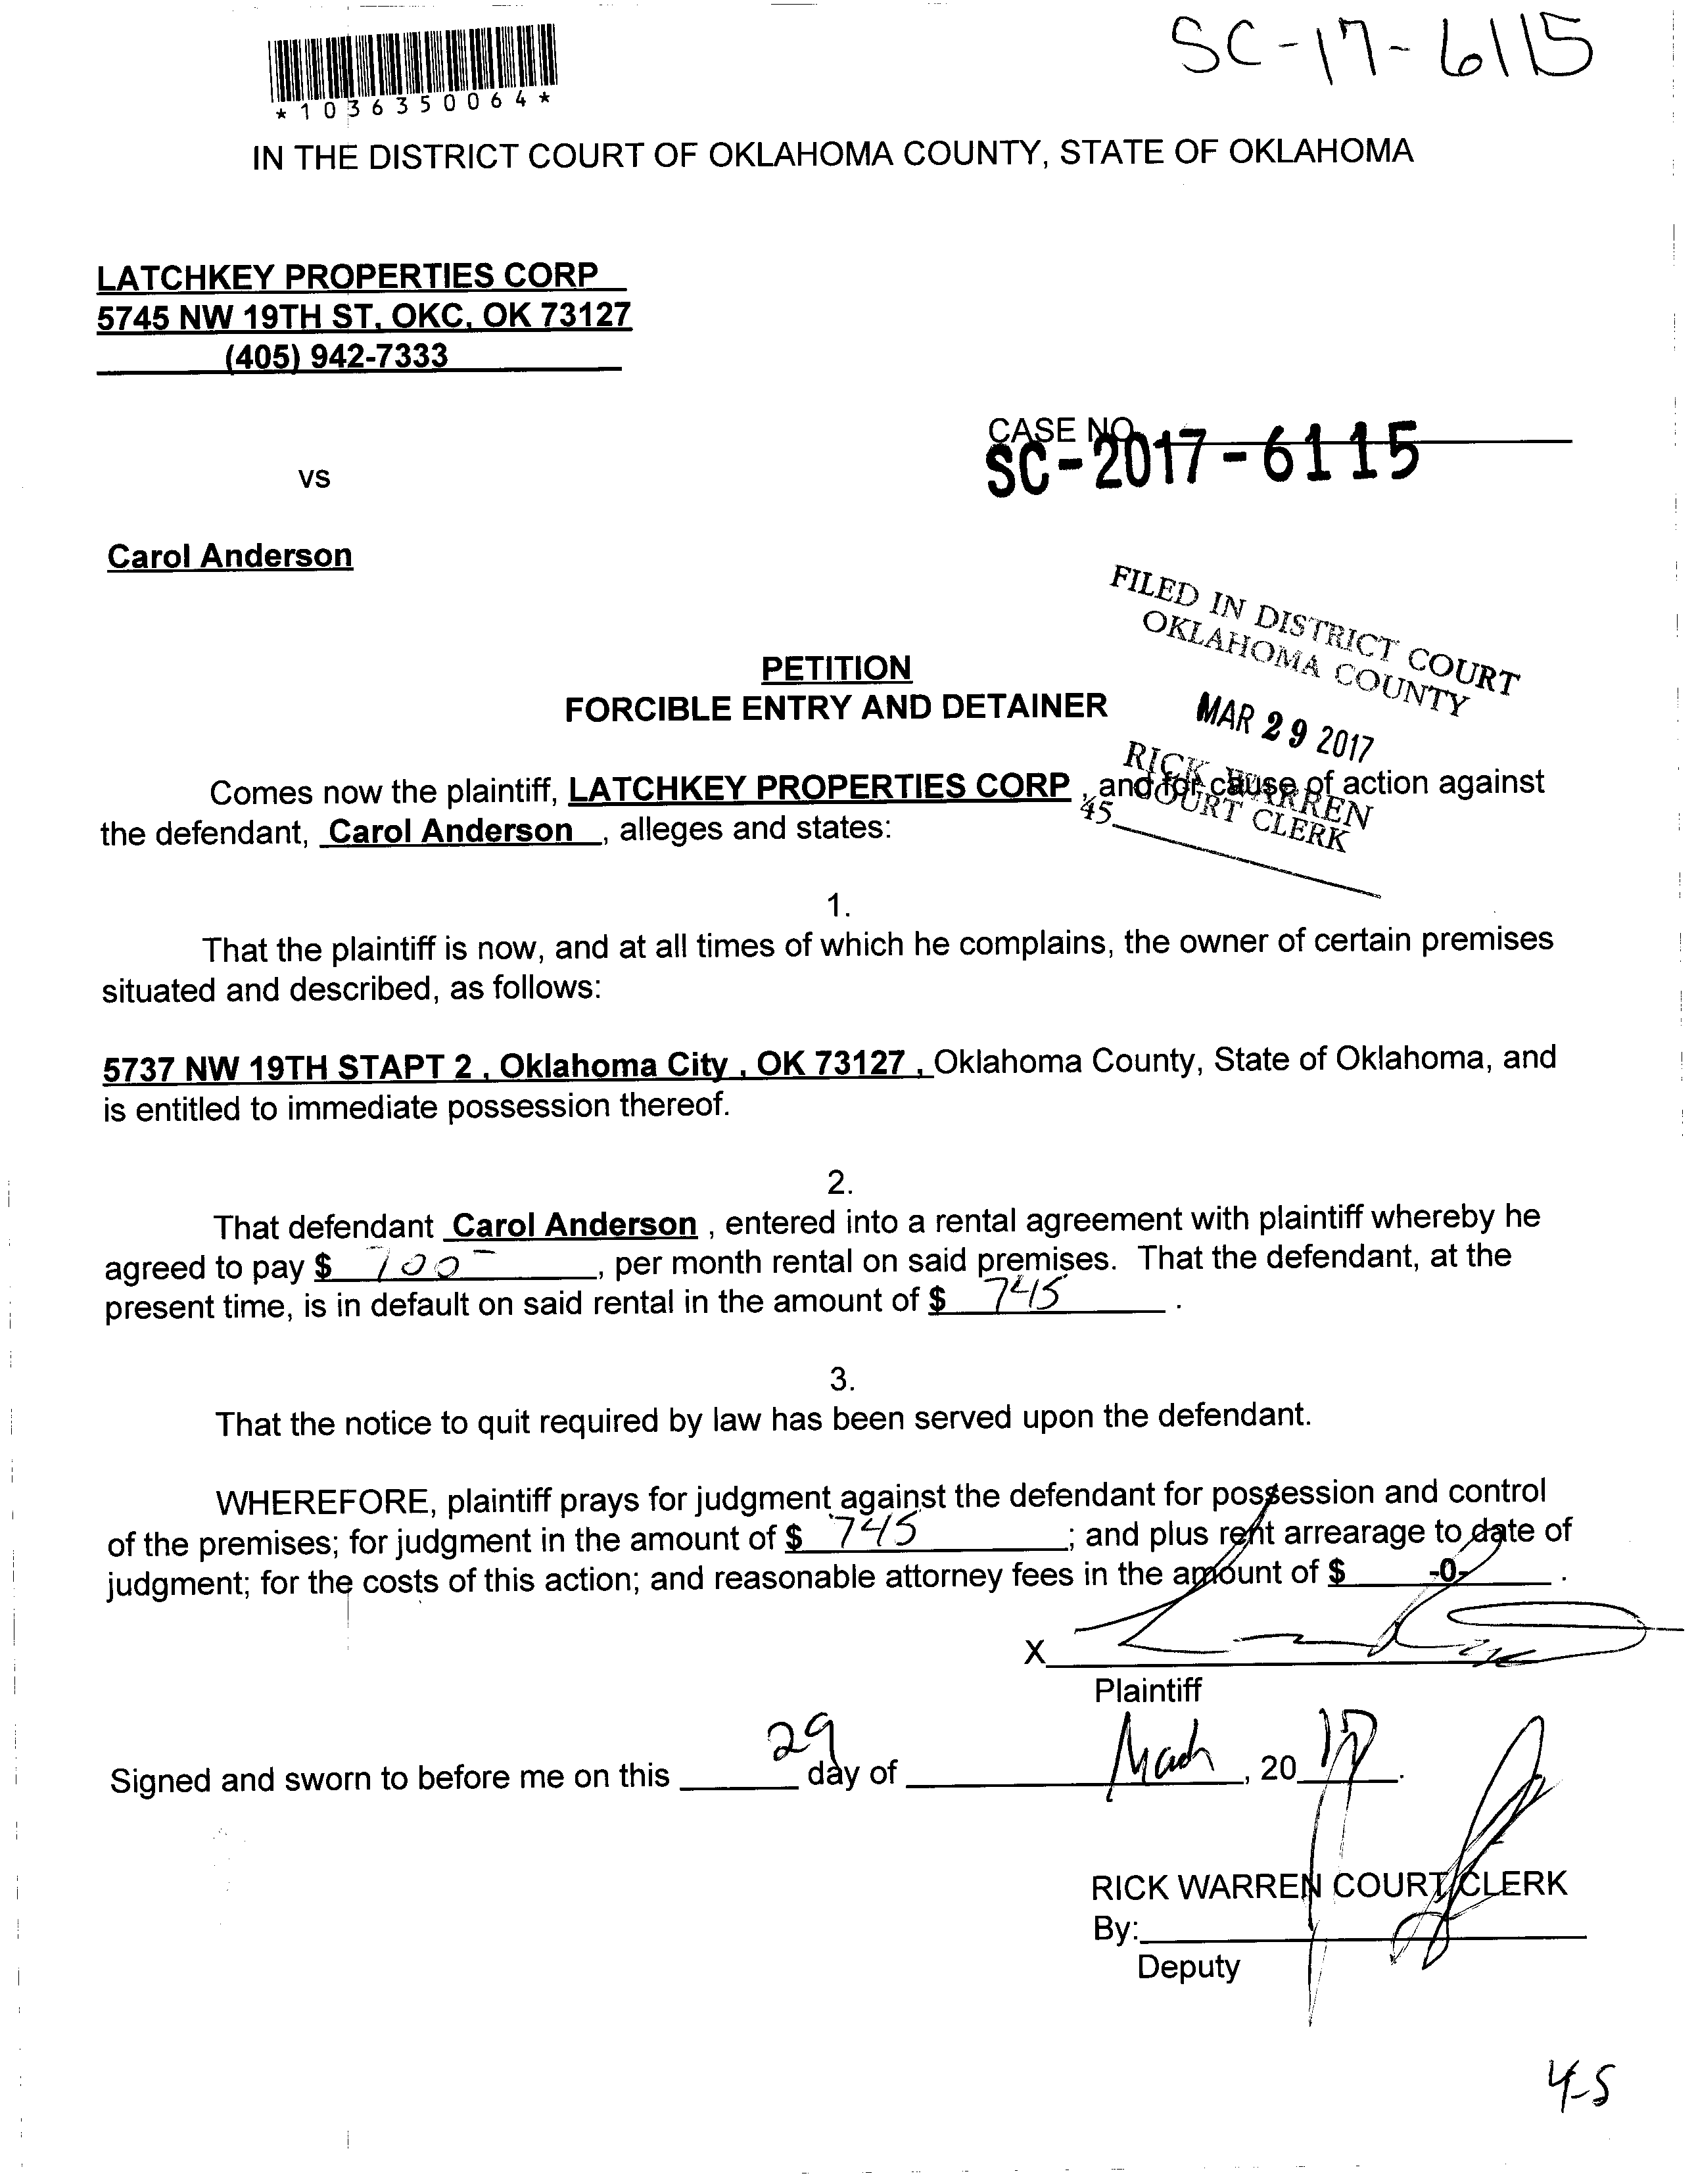 SC-17-6115
*1036350064*
IN THE DISTRICT COURT OF OKLAHOMA COUNTY, STATE OF OKLAHOMA
LATCHKEY PROPERTIES CORP
5745 NW 19TH ST, OKC, OK 73127
(405) 942-7333
CASE NO.
SC-2017-6115
VS
Carol Anderson
FILED IN DISTRICT COURT
OKLAHOMA COUNTY
MAR 29 2017
RICK WARREN
COURT CLERK
45
PETITION
FORCIBLE ENTRY AND DETAINER
Comes now the plaintiff, LATCHKEY PROPERTIES CORP , and for cause of action against
the defendant, Carol Anderson , alleges and states:
1.
That the plaintiff is now, and at all times of which he complains, the owner of certain premises
situated and described, as follows:
5737 NW 19TH STAPT 2 , Oklahoma City , OK 73127 , Oklahoma County, State of Oklahoma, and
is entitled to immediate possession thereof.
2.
That defendant Carol Anderson , entered into a rental agreement with plaintiff whereby he
agreed to pay $ 700- , per month rental on said premises. That the defendant, at the
present time, is in default on said rental in the amount of $ 745 .
3.
That the notice to quit required by law has been served upon the defendant.
WHEREFORE, plaintiff prays for judgment against the defendant for possession and control
of the premises; for judgment in the amount of $ 745 ; and plus rent arrearage to date of
judgment; for the costs of this action; and reasonable attorney fees in the amount of $ -0- .
X
Plaintiff
Signed and sworn to before me on this 29 day of March , 20 17 .
RICK WARREN COURT CLERK
By:
Deputy
4-5